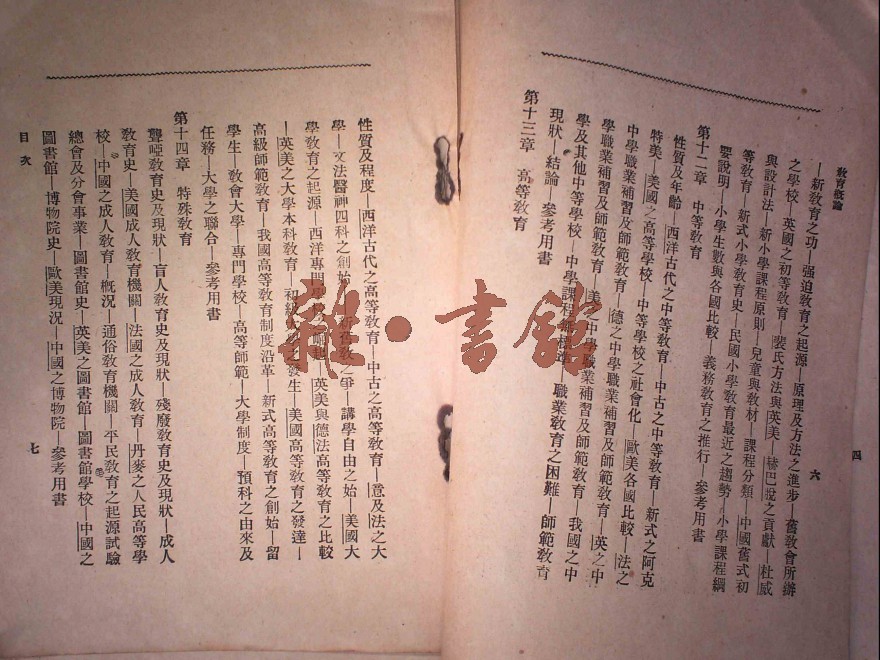 教育概論
六
四
—新教育之功—强迫教育之起源—原理及方法之進步—舊教會所辦
之學校—英國之初等教育—裴氏方法與英美—赫巴脫之貢獻—杜威
與設計法—新小學課程原則—兒童與教材—課程分類—中國舊式初
等教育—新式小學教育史—民國小學教育最近之趨勢—小學課程綱
要說明—小學生數與各國比較—義務教育之推行—參考用書
第十二章 中等教育
性質及年齡—西洋古代之中等教育—中古之中等教育—新式之阿克
特美—美國之高等學校—中等學校之社會化—歐美各國比較—法之
中學職業補習及師範敎育—德之中學職業補習及師範敎育—英之中
學職業補習及師範敎育—美之中學職業補習及師範敎育—我國之中
學及其他中等學校—中學課程標準—職業敎育之困難—師範敎育
現狀—結論—參考用書
第十三章 高等敎育
性質及程度—西洋古代之高等敎育—中古之高等敎育—意及法之大
學—文法醫神四科之創始—新舊敎之爭—講學自由之始—美國大
學敎育之起源—西洋專門學校之崛起—英美與德法高等敎育之比較
—英美之大學本科敎育—初級大學之發生—美國高等敎育之發達—
高級師範敎育—我國高等敎育制度沿革—新式高等敎育之創始—留
學生—敎會大學—專門學校—高等師範—大學制度—預科之由來及
任務—大學之聯合—參考用書
第十四章 特殊敎育
聾啞敎育史及現狀—盲人敎育史及現狀—殘廢敎育史及現狀—成人
敎育史—美國成人敎育機關—法國之成人敎育—丹麥之人民高等學
校—中國之成人敎育—概況—通俗敎育機關—平民敎育之起源試驗
總會及分會事業—圖書館史—英美之圖書館—圖書館學校—中國之
圖書館—博物院史—歐美現況—中國之博物院—參考用書
目次
七
雅·書館